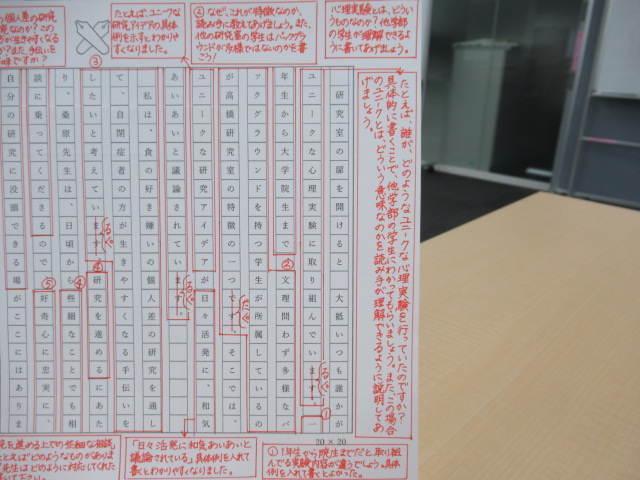 研究室の扉を開けると、大抵いつも誰かが
ユニークな心理実験に取り組んでいます。一
年生から大学院生まで、文理問わず多様なバ
ックグラウンドを持つ学生が所属しているの
が高橋研究室の特徴の一つです。そこでは、
ユニークな研究アイデアが日々活発に、和気
あいあいと議論されています。
私は、食の好き嫌いの個人差の研究を通し
て、自閉症者の方が生きやすくなる手伝いを
したいと考えています。研究を進めるにあた
り、桑原先生は、日頃から些細なことでも相
談に乗ってくださるので、好奇心に忠実に、
自分の研究に没頭できる場がここにはありま
20×20
心理実験とは、どうい
うものなのか?他学部
の学生が理解できるよ
うに書いてあげましょう。
② なぜ、これが特徴なのか、
読み手に教えてあげましょう。また、
他の研究室の学生はバックグラ
ウンドが多様ではないのかを書
こう!
たとえば、ユニークな
研究アイデアの具体
例を示すとわかりや
すくなりました。
③
個人差の研究
究なのか?この
方が生きやすくなる
か?また、手伝いを
味ですか?
たとえば、誰が、どのようなユニークな心理実験を行っていたのですか?
具体的に書くことで、他学部の学生にわかってもらいましょう。また、この場合
のユニークとは、どういう意味なのかを読み手が理解できるように説明してあ
げましょう。
① 1年生から院生までだと、取り組
んでる実験内容が違うでしょう。具体
例を入れて書くとよかった。
「日々活発に和気あいあいと
議論されている」具体例を入れて
書くとわかりやすくなりました。
究を進める上での些細な相談。
たとえばどのようなものがありま
先生はどのように対応してくれた
いて下さい。
①
②
④
④
⑤